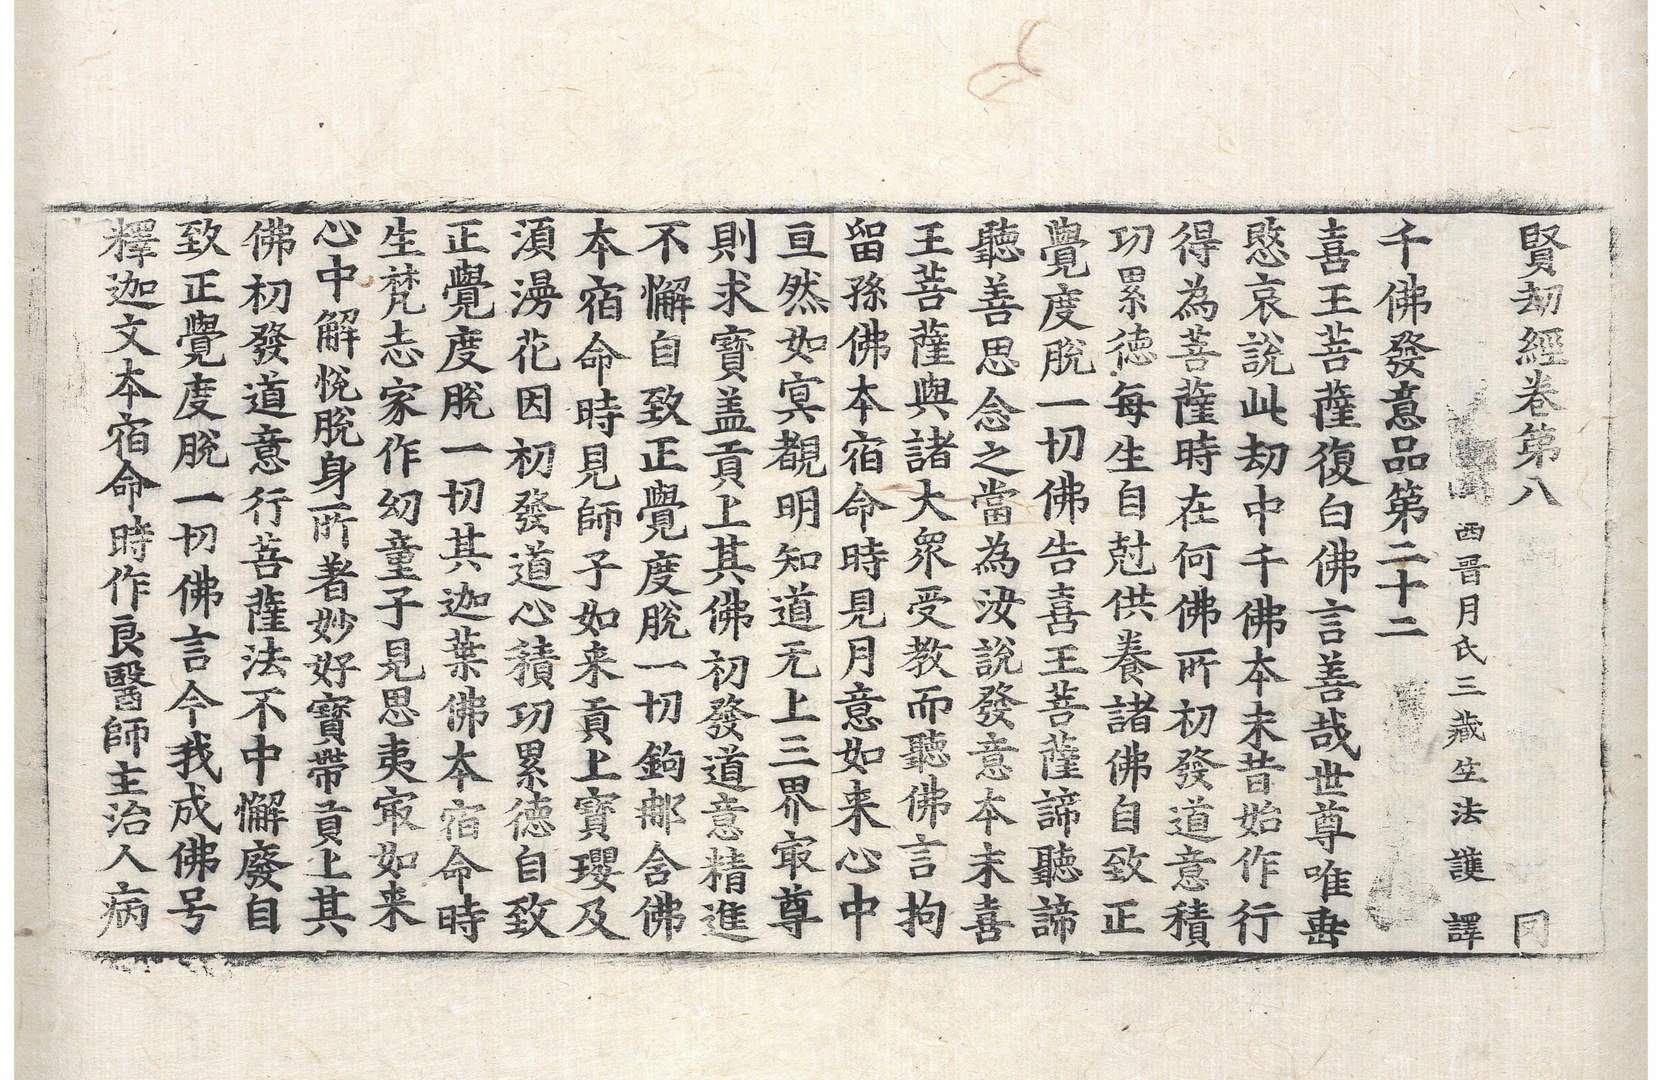 賢劫經卷第八 同
西晋月氏三藏竺法護譯
千佛發意品第二十二
喜王菩薩復白佛言善哉世尊唯垂
愍哀說此劫中千佛本末昔始作行
得為菩薩時在何佛所初發道意積
功累德每生自尅供養諸佛自致正
覺度脫一切佛告喜王菩薩諦聽諦
聽善思念之當為汝說發意本末喜
王菩薩與諸大衆受教而聽佛言拘
留孫佛本宿命時見月意如来心中
亘然如冥覩明知道无上三界㝡尊
則求寶盖貢上其佛初發道意精進
不懈自致正覺度脫一切鉤那含佛
本宿命時見師子如来貢上寶瓔及
湏漫花因初發道心積功累德自致
正覺度脫一切其迦葉佛本宿命時
生梵志家作幼童子見思夷㝡如来
心中解悅脫身所著妙好寶帶貢上其
佛初發道意行菩薩法不中懈廢自
致正覺度脫一切佛言今我成佛号
釋迦文本宿命時作良醫師主治人病